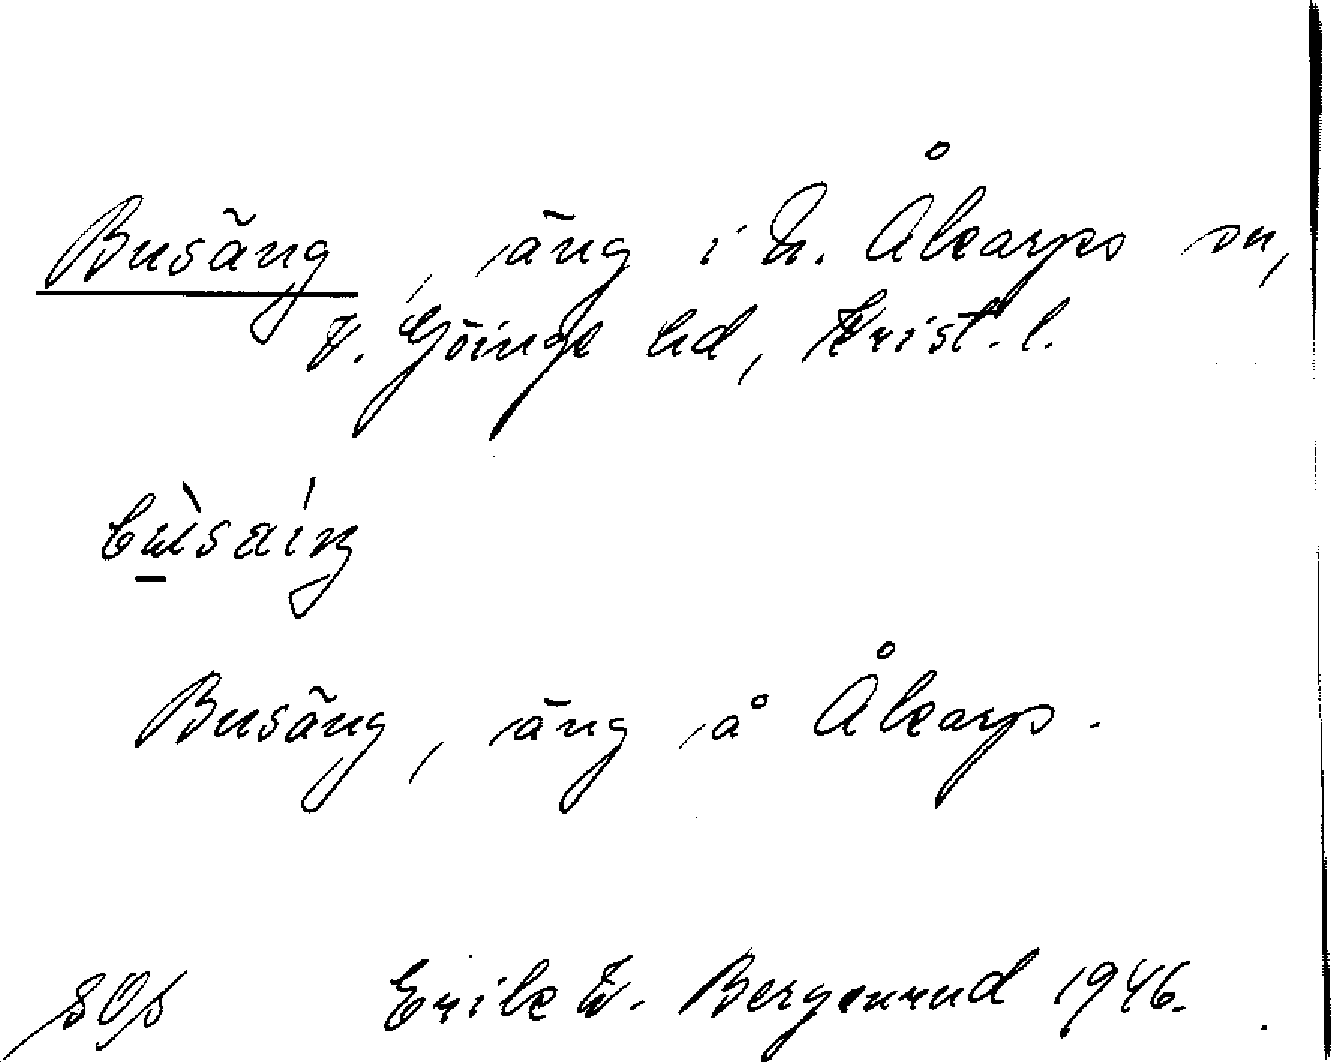 Busäng, äng i N. Åkarps sn,
V. Göinge hd, Krist. l.
bù̱saíŋ
Busäng, äng å Åkarp.
Erik W. Bergenrud 1946.